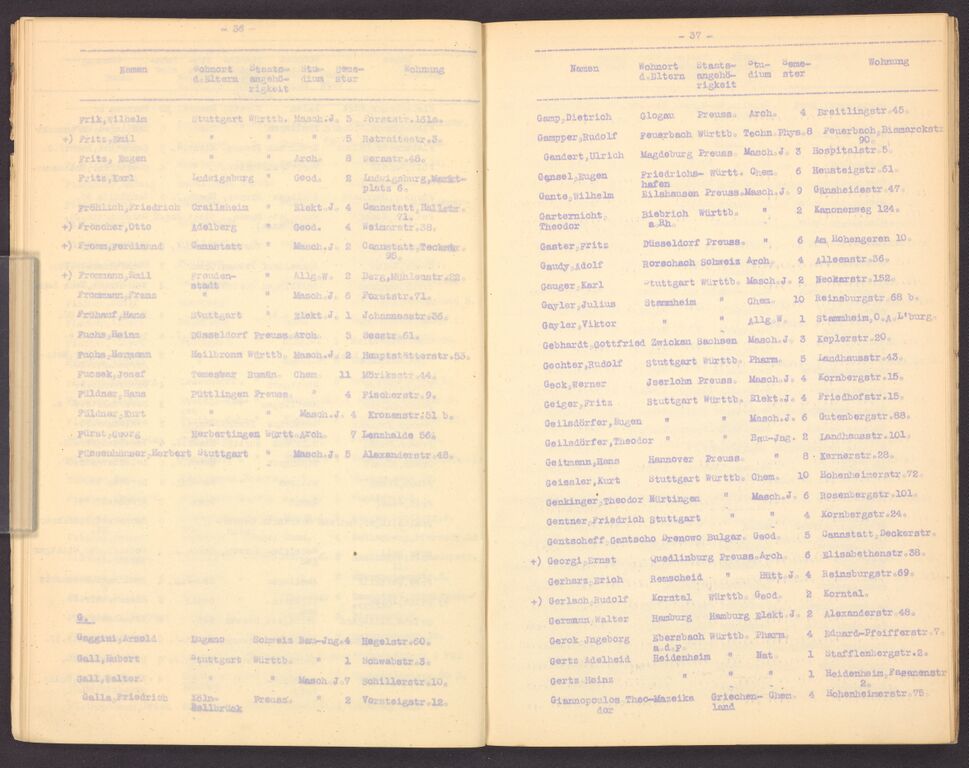 - 36 -
Namen Wohnort d.Eltern Staats-angehö-rigkeit Stu-dium Seme-ster Wohnung
Frik,Wilhelm Stuttgart Württb. Masch.J. 3 Forststr.151a.
+) Fritz,Emil " " " 5 Retraitestr.3.
Fritz, Eugen " " Arch. 8 Werastr.48.
Fritz,Karl Ludwigsburg " Geod. 2 Ludwigsburg,Markt-
platz 6.
Fröhlich,Friedrich Crailsheim " Elekt.J. 4 Cannstatt, Hallstr.
71.
+) Fröscher,Otto Adelberg " Geod. 4 Weimarstr.38.
+) Fromm,Ferdinand Cannstatt " Masch.J. 2 Cannstatt,Teckstr.
+) Frommann,Emil Freuden- " Allg.W. 2 Berg,Mühlenstr.22.
stadt
Frommann,Franz " " Masch.J. 6 Forststr.71.
Frühauf,Hans Stuttgart " Elekt.J. 1 Johannesstr.36.
Fuchs,Heinz Düsseldorf Preuss.Arch. 3 Seestr.61.
Fuchs,Hermann Heilbronn Württb. Masch.J. 2 Hauptstätterstr.53.
Fucsek,Josef Temesbar Rumän. Chem. 11 Mörikestr.44.
Füldner,Hans Püttlingen Preuss. " 4 Fischerstr.9.
Füldner,Kurt " " Masch.J. 4 Kronenstr.51 b.
Fürst,Georg Herbertingen Württ.Arch. 7 Lenzhalde 56.
Füssenhäuser,Herbert Stuttgart " Masch.J. 5 Alexanderstr.48.
G.
Gaggini,Arnold Lugano Schweiz Bau-Jng.4 Hegelstr.60.
Gall,Hubert Stuttgart Württb. " 1 Schwabstr.3.
Gall,Walter " " Masch.J.7 Schillerstr.10.
Galla,Friedrich Köln- Preuss. " 2 Vorsteigstr.12.
Dellbrück
- 37 -
Namen Wohnort d.Eltern Staats-angehö-rigkeit Stu-dium Seme-ster Wohnung
Gamp,Dietrich Glogau Preuss. Arch. 4 Breitlingstr.45.
Gampper,Rudolf Feuerbach Württb. Techn.Phys.8 Feuerbach,Bismarckstr
90.
Gandert,Ulrich Magdeburg Preuss. Masch.J. 3 Hospitalstr.5.
Gänsel,Eugen Friedrichs- Württ. Chem. 6 Heusteigstr.61.
hafen
Gante,Wilhelm Eilshausen Preuss.Masch.J. 9 Gänsheidestr.47.
Garternicht, Biebrich Württb. " 2 Kanonenweg 124.
Theodor a.Rh.
Gaster,Fritz Düsseldorf Preuss. " 6 Am Hohengeren 10.
Gaudy,Adolf Rorschach Schweiz Arch. 4 Alleenstr.36.
Gauger,Karl Stuttgart Württb. Masch.J. 2 Neckarstr.152.
Gayler,Julius Stammheim " Chem. 10 Reinsburgstr.68 b.
Gayler,Viktor " " Allg.W. 1 Stammheim,O.A.L'burg.
Gebhardt,Gottfried Zwickau Sachsen Masch.J. 3 Keplerstr.20.
Gechter,Rudolf Stuttgart Württb. Pharm. 5 Landhausstr.43.
Geck,Werner Jserlohn Preuss. Masch.J. 4 Kornbergstr.15.
Geiger,Fritz Stuttgart Württb. Elekt.J. 4 Friedhofstr.15.
Geilsdörfer,Eugen " " Masch.J. 6 Gutenbergstr.88.
Geilsdörfer,Theodor " " Bau-Jng. 2 Landhausstr.101.
Geitmann,Hans Hannover Preuss. " 8 Kernerstr.28.
Geissler,Kurt Stuttgart Württb. Chem. 10 Hohenheimerstr.72.
Genkinger,Theodor Nürtingen " Masch.J. 6 Rosenbergstr.101.
Gentner,Friedrich Stuttgart " " 4 Kornbergstr.24.
Gentscheff,Gantscho Drenowo Bulgar. Geod. 5 Cannstatt,Deckerstr.
+) Georgi,Ernst Quedlinburg Preuss.Arch. 6 Elisabethenstr.38.
Gerharz,Erich Remscheid " Hütt.J. 4 Reinsburgstr.69.
+) Gerlach,Rudolf Korntal Württb. Geod. 2 Korntal.
Germann,Walter Hamburg Hamburg Elekt.J. 2 Alexanderstr.48.
Gerok Jngeborg Ebersbach Württb. Pharm. 4 Eduard-Pfeifferstr.7.
a.d.F.
Gertz Adelheid Heidenheim " Nat. 1 Stafflenbergstr.2.
Gertz Heinz " " " 1 Heidenheim,Fasanenstr
2.
Giannopoulos Theo-Mazeika Griechen- Chem. 4 Hohenheimerstr.75.
dor land